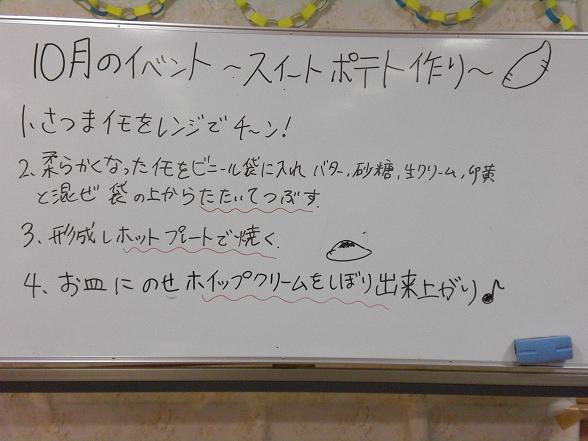 10月のイベント ～スイートポテト作り～
1、さつまイモをレンジでチ～ン!
2、柔らかくなったイモをビニール袋に入れ バター、砂糖、生クリーム、卵黄
と混ぜ 袋の上からたたいてつぶす
3、形成しホットプレートで焼く
4、お皿にのせホイップクリームをしぼり出来上がり♪